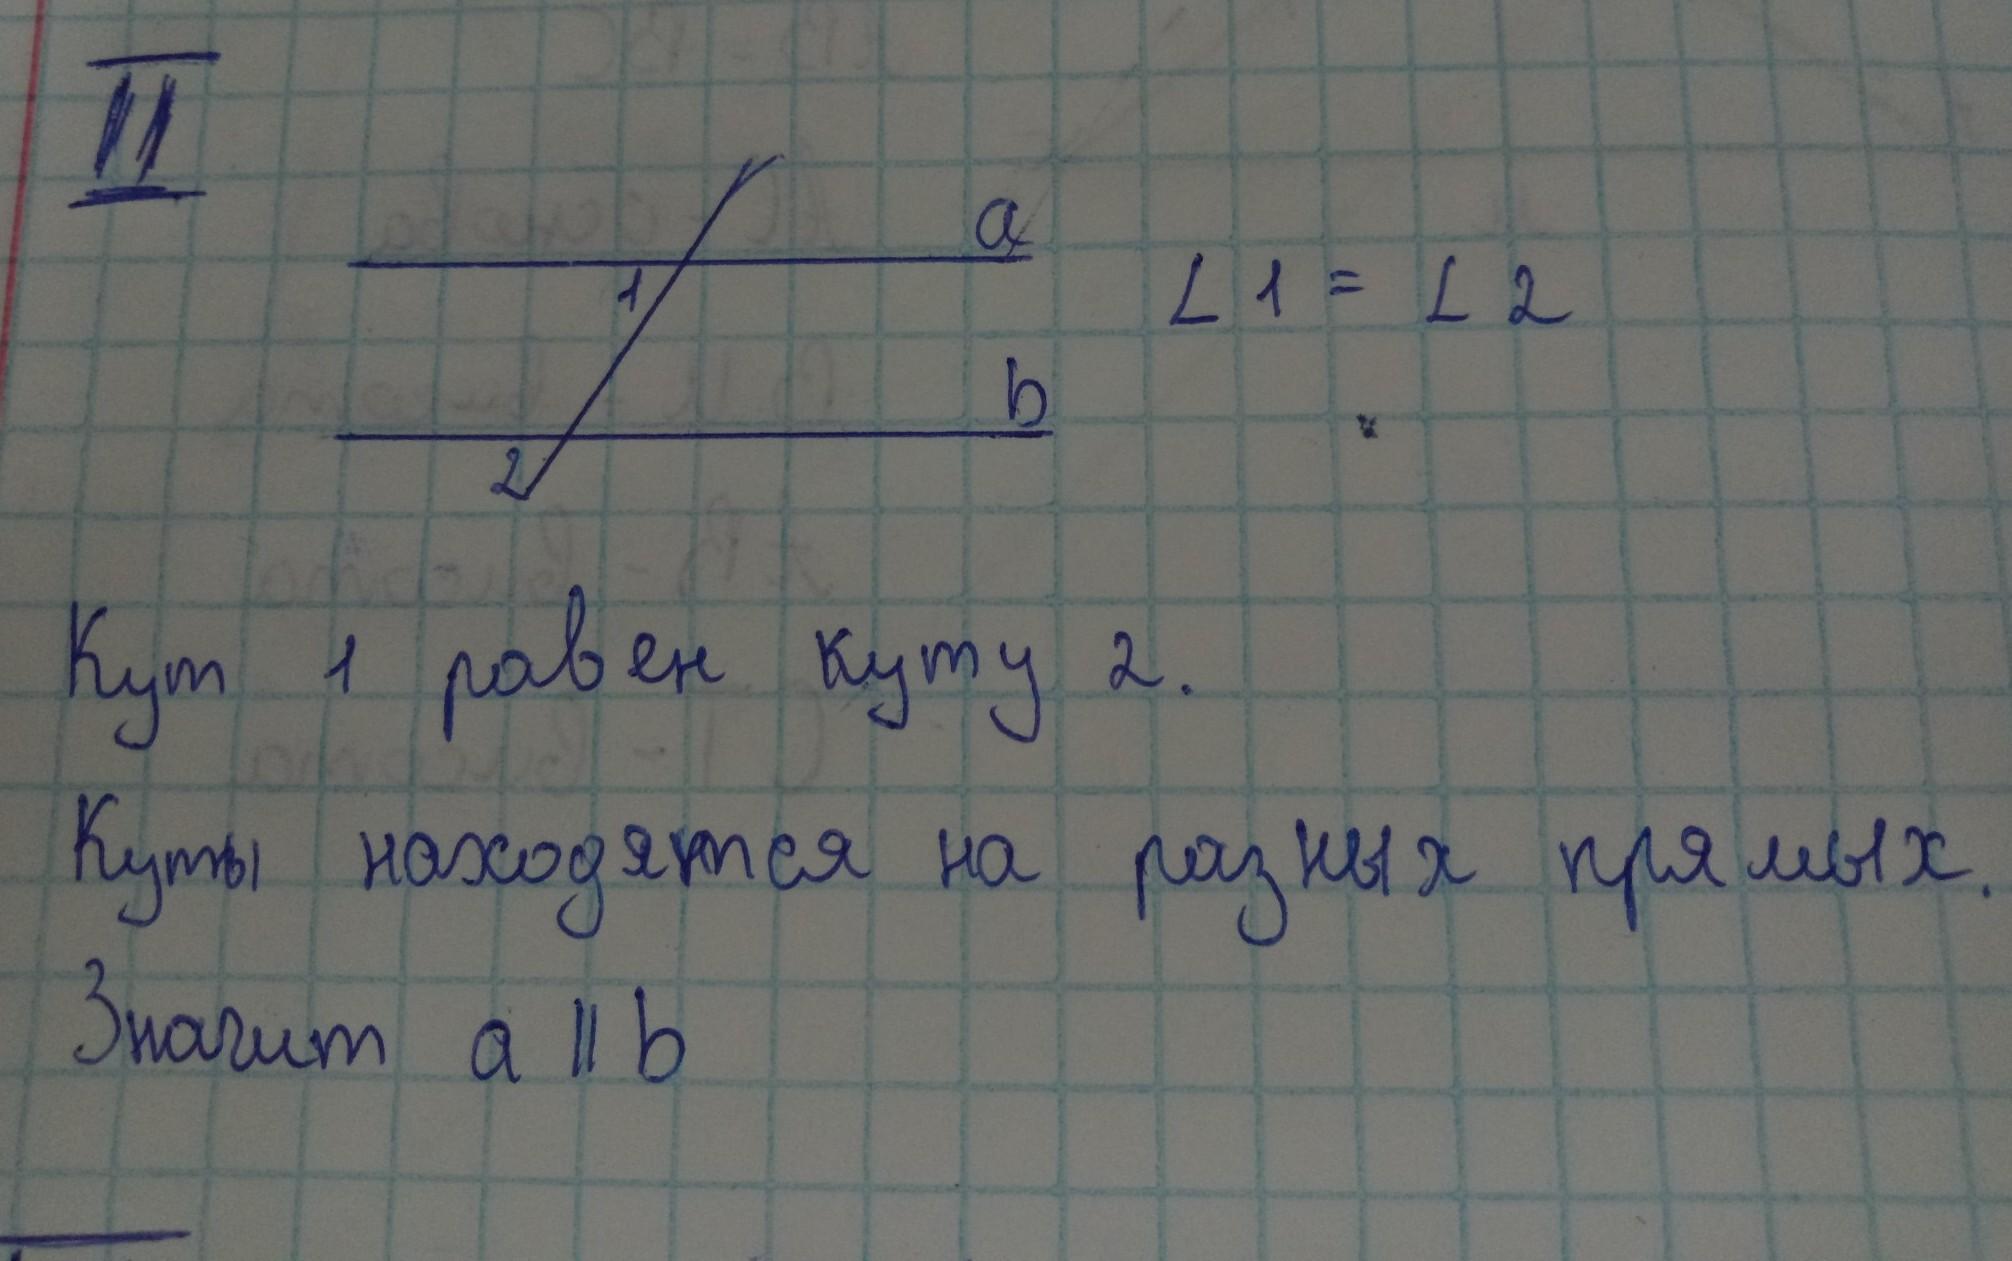 II
a
1
∠1 = ∠2
b
2
Кут 1 равен куту 2.
Куты находятся на разных прямых.
Значит a || b